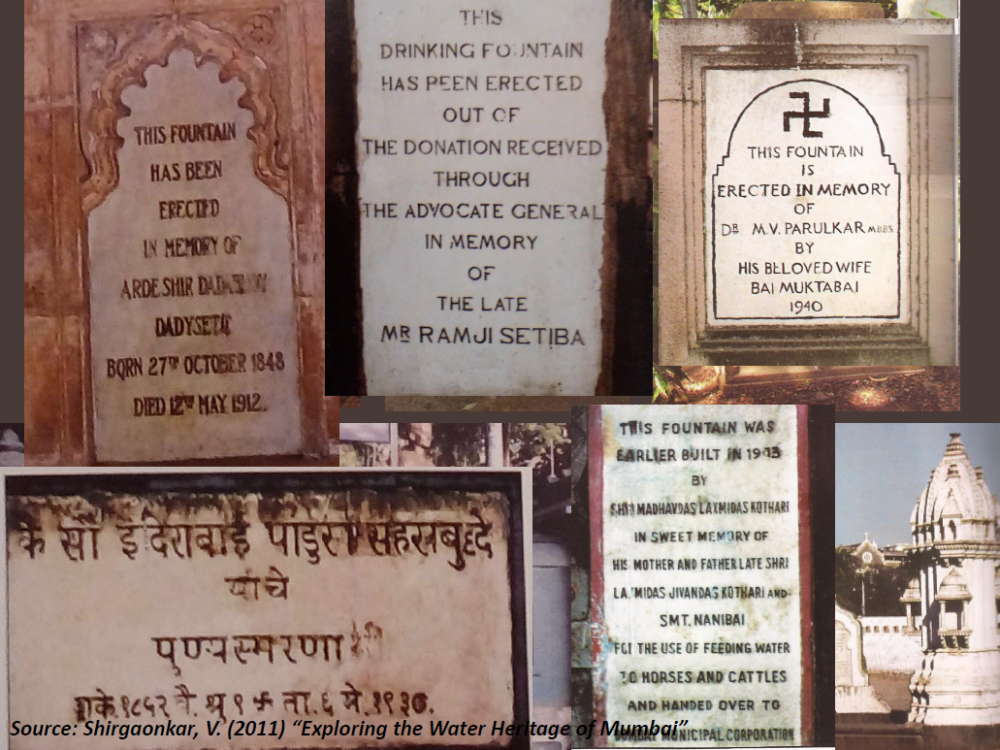 THIS FOUNTAIN
HAS BEEN
ERECTED
IN MEMORY OF
ARDESHIR
DADYSETT
BORN 27TH OCTOBER 1848
DIED 12TH MAY 1912.
THIS
DRINKING FOUNTAIN
HAS BEEN ERECTED
OUT OF
THE DONATION RECEIVED
THROUGH
THE ADVOCATE GENERAL
IN MEMORY
OF
THE LATE
MR RAMJI SETIBA
THIS FOUNTAIN
IS
ERECTED IN MEMORY
OF
DR M.V. PARULKAR M.B.B.S.
BY
HIS BELOVED WIFE
BAI MUKTABAI
1940
कै सौ इंदिराबाई पांडुरंग सहस्रबुद्धे
यांचे
पुण्यस्मरणार्थ
शके १८५२ वै. श्रु ९ ता. ६ मे. १९३०.
THIS FOUNTAIN WAS
EARLIER BUILT IN 1943
BY
SHRI MADHAVDAS LAXMIDAS KOTHARI
IN SWEET MEMORY OF
HIS MOTHER AND FATHER LATE SHRI
LAXMIDAS JIVANDAS KOTHARI AND
SMT. NANIBAI
FOR THE USE OF FEEDING WATER
TO HORSES AND CATTLES
AND HANDED OVER TO
BOMBAY MUNICIPAL CORPORATION
Source: Shirgaonkar, V. (2011) “Exploring the Water Heritage of Mumbai”